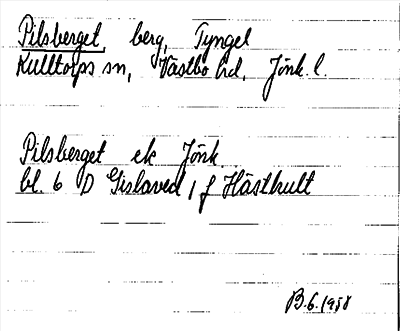 Pilsberget, berg, Tyngel
Kulltorps sn, Västbo hd, Jönk. l.
Pilsberget ek Jönk.
bl. 6 D Gislaved, f Hästhult
B.6.1958